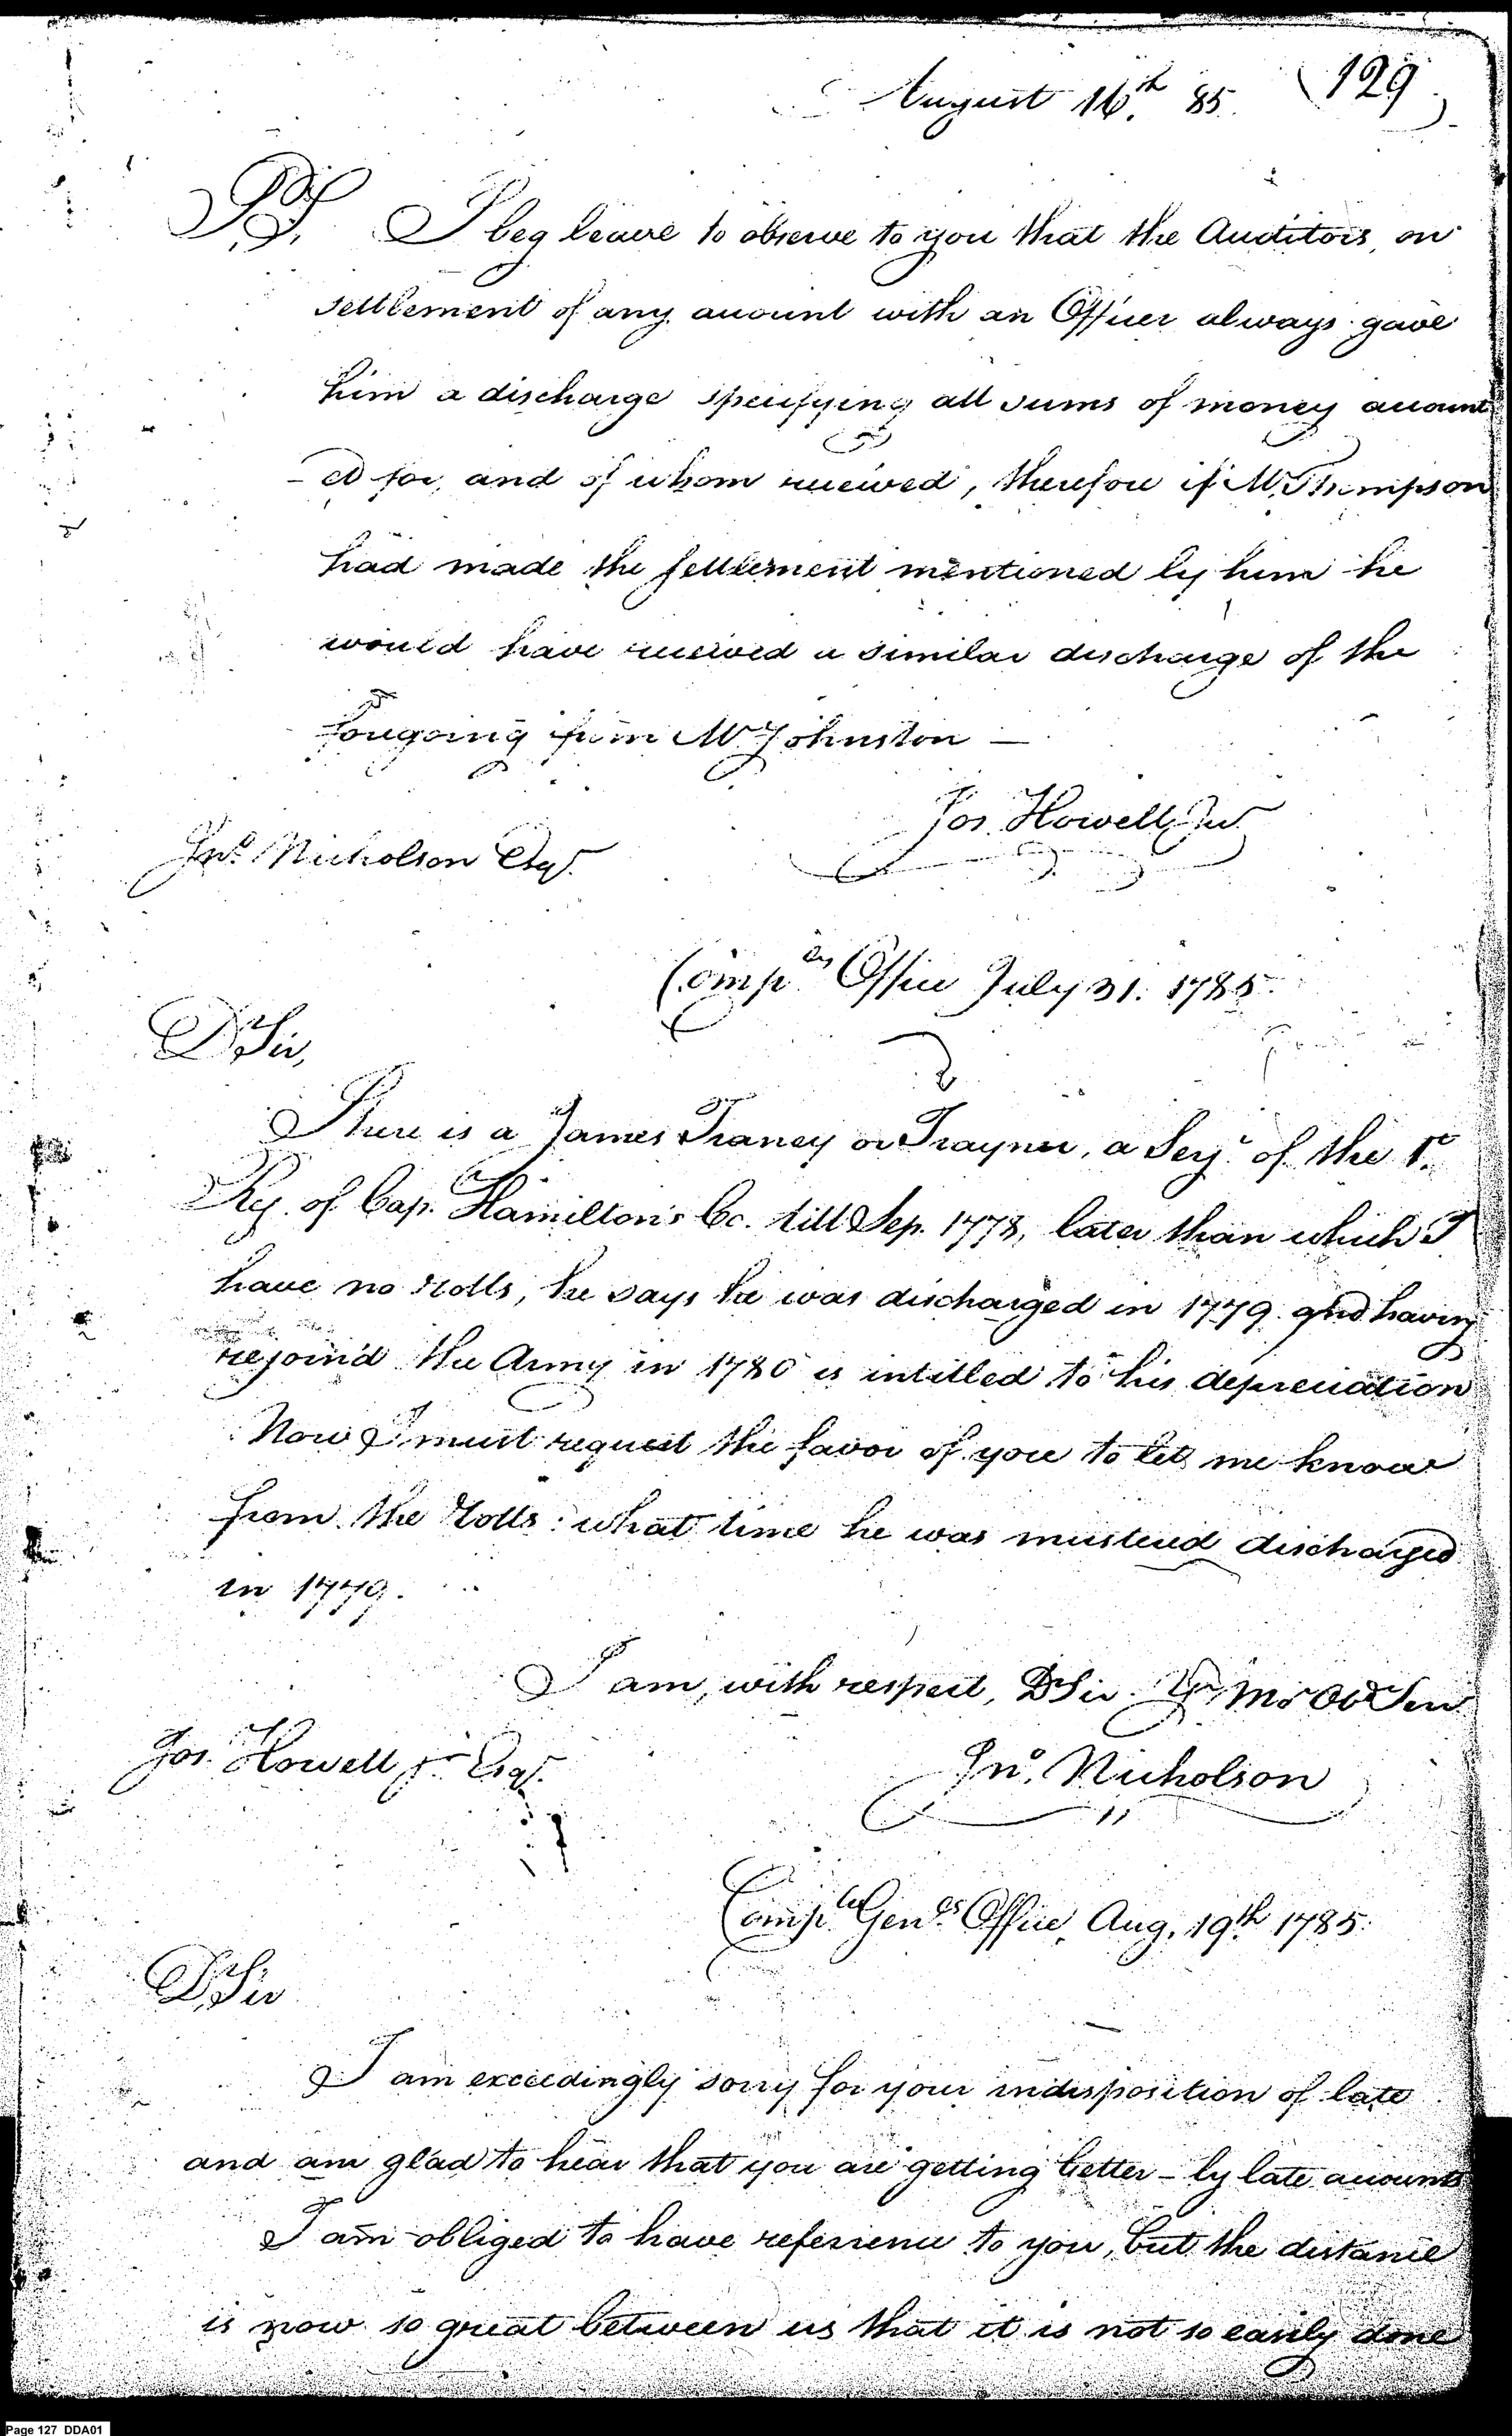 August 16th. 85. (129)
PS. I beg leave to observe to you that the Auditors, on
settlement of any account with an Officer always gave
him a discharge specifying all sums of money account
-ed for, and of whom received, therefore if Mr. Thompson
had made the settlement mentioned by him he
would have received a similar discharge of the
foregoing from Mr. Johnston —
Jos. Howell Jur.
Jno. Nicholson Esqr.
Comp.ers Office July 31. 1785.
D Sir,
There is a James Traney or Trayner, a Serjt. of the 1st.
Reg. of Cap. Hamilton's Co. till Sep. 1778, later than which I
have no rolls, he says he was discharged in 1779. and having
rejoin'd the Army in 1780 is intitled to his depreciation
Now I must request the favor of you to let me know
from the rolls what time he was mustered discharged
in 1779.
I am, with respect, D Sir. Yr. Mo Ob Ser
Jos. Howell jr. Esqr.
Jno. Nicholson
Comp.ler Gen.ls Office, Aug. 19th 1785.
D Sir
I am exceedingly sorry for your indisposition of late
and am glad to hear that you are getting better - by late accounts
I am obliged to have reference to you, but the distance
is now so great between us that it is not so easily done
Page 127 DDA01